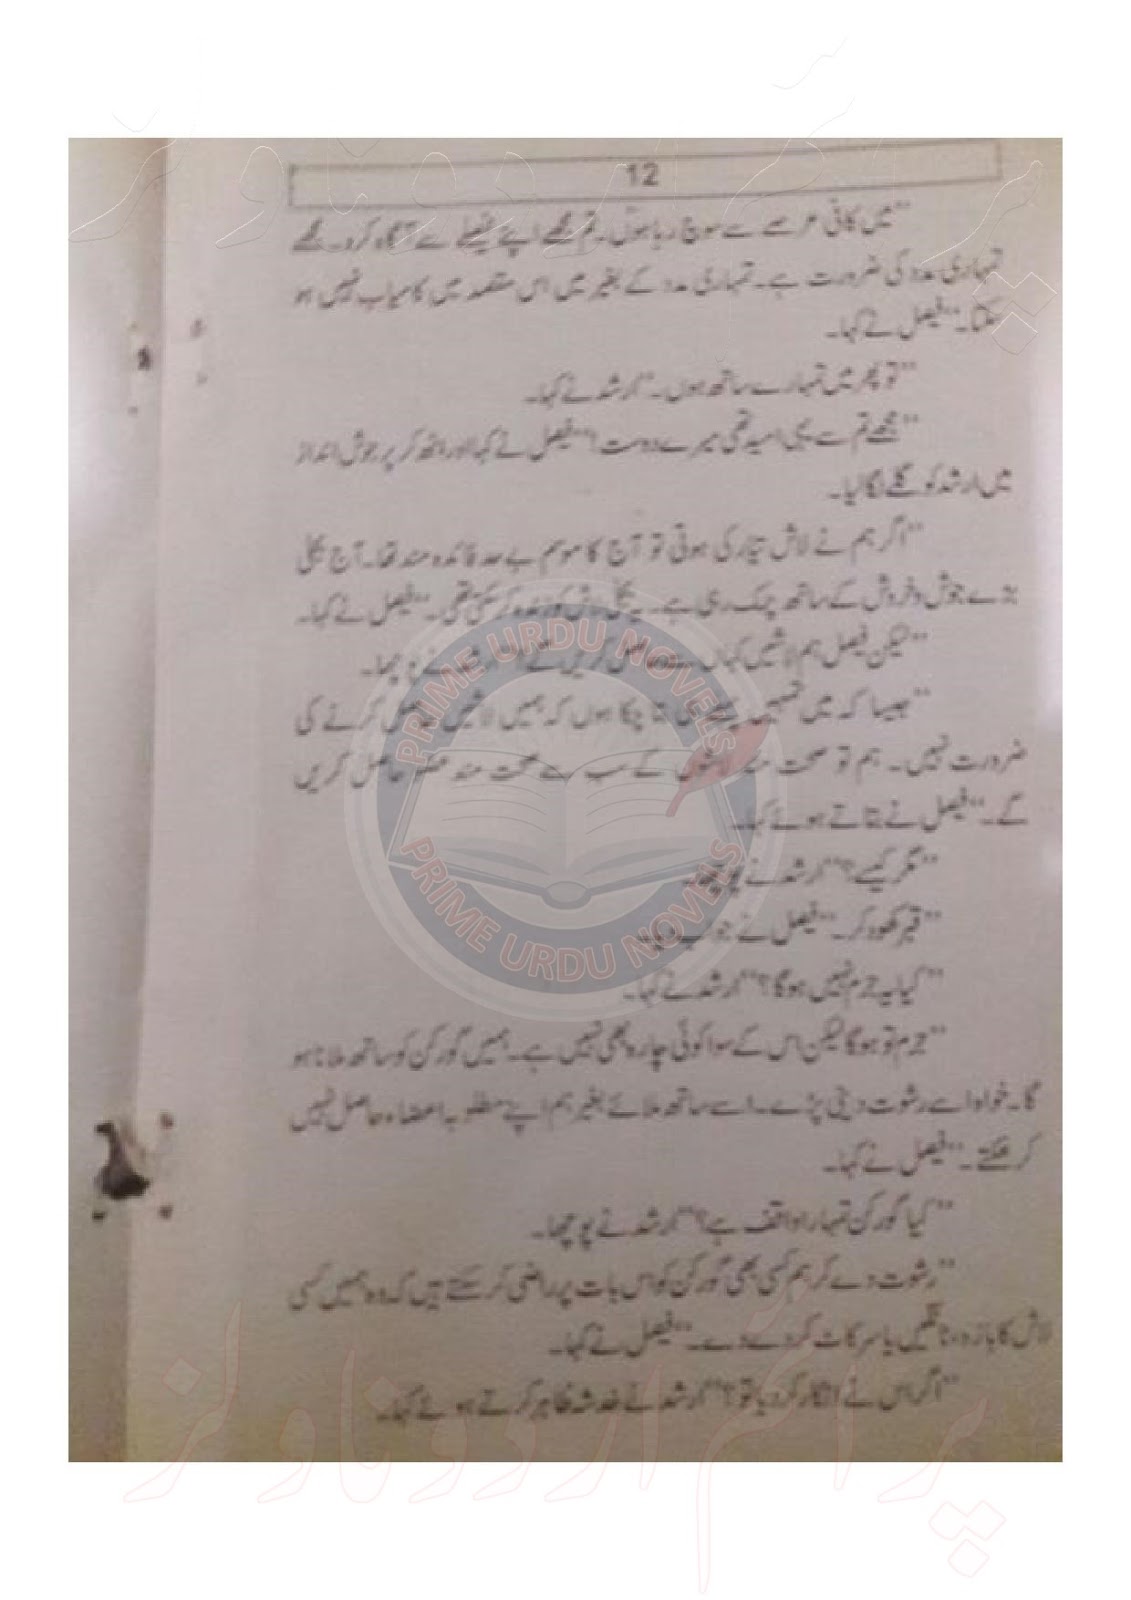 12
"میں کافی عرصے سے سوچ رہا ہوں۔ تم مجھے اپنے فیصلے سے آگاہ کرو۔ مجھے
تمہاری مدد کی ضرورت ہے۔ تمہاری مدد کے بغیر میں اس مقصد میں کامیاب نہیں ہو
سکتا۔" فیصل نے کہا۔
"تو پھر میں تمہارے ساتھ ہوں۔" ارشد نے کہا۔
"مجھے تم سے یہی امید تھی میرے دوست!" فیصل نے کہا اور اٹھ کر پرجوش انداز
میں ارشد کو گلے لگا لیا۔
"اگر ہم نے لاش تیار کی ہوتی تو آج کا موسم بے حد فائدہ مند تھا۔ آج بجلی
بڑے جوش و خروش کے ساتھ چمک رہی ہے۔ یہ بجلی لاش کو زندہ کر سکتی تھی۔" فیصل نے کہا۔
"لیکن فیصل ہم لاشیں کہاں سے حاصل کریں گے؟" ارشد نے پوچھا۔
"جیسا کہ میں تمہیں بتا چکا ہوں کہ ہمیں لاشیں حاصل کرنے کی
ضرورت نہیں۔ ہم تو صحت مند لاشوں کے سب سے صحت مند عضو حاصل کریں
گے۔" فیصل نے بتاتے ہوئے کہا۔
"مگر کیسے؟" ارشد نے پوچھا۔
"قبر کھود کر۔" فیصل نے جواب دیا۔
"کیا یہ جرم نہیں ہوگا؟" ارشد نے کہا۔
"جرم تو ہوگا لیکن اس کے سوا کوئی چارہ بھی نہیں ہے۔ ہمیں گورکن کو ساتھ ملانا ہو
گا۔ خواہ اسے رشوت دینی پڑے۔ اسے ساتھ ملائے بغیر ہم اپنے مطلوبہ اعضاء حاصل نہیں
کر سکتے۔" فیصل نے کہا۔
"کیا گورکن تمہارا واقف ہے؟" ارشد نے پوچھا۔
"رشوت دے کر ہم کسی بھی گورکن کو اس بات پر راضی کر سکتے ہیں کہ وہ ہمیں کسی
لاش کا بازو، ٹانگیں یا سر کاٹ کر دے دے۔" فیصل نے کہا۔
"اگر اس نے انکار کر دیا تو؟" ارشد نے خدشہ ظاہر کرتے ہوئے کہا۔
PRIME URDU NOVELS
PRIME URDU NOVELS
پرائم اردو ناولز
پرائم اردو ناولز